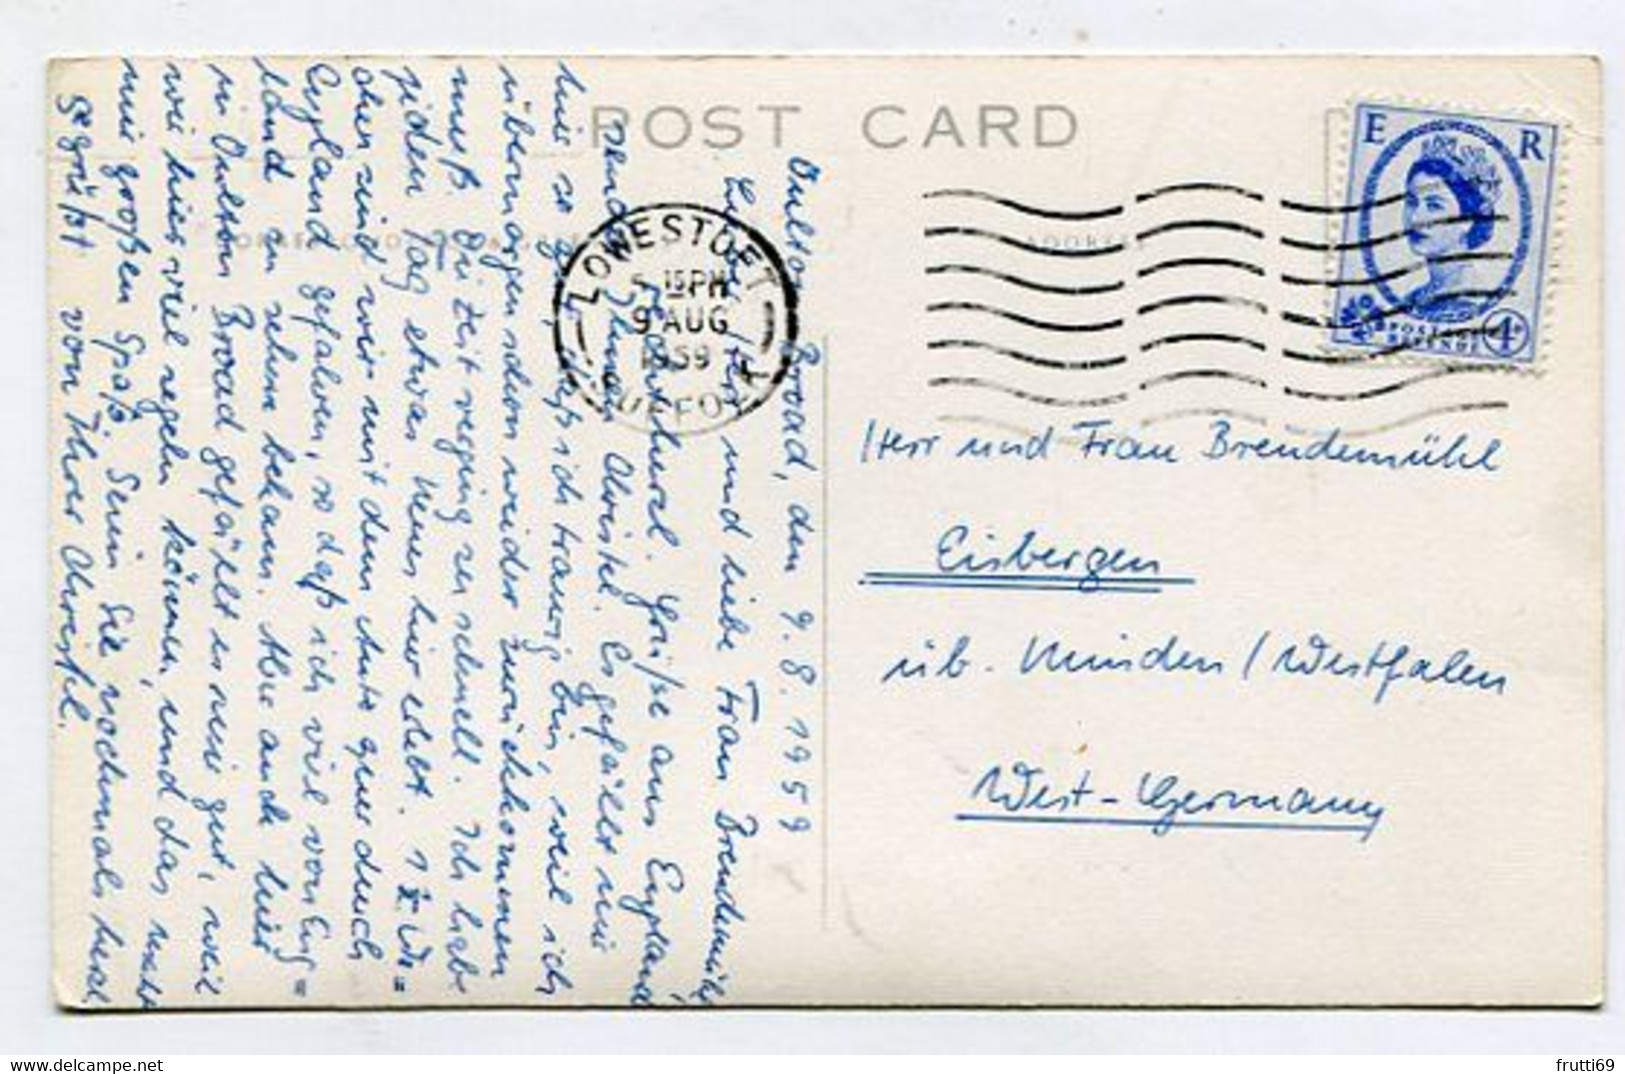 POST CARD
ADDRESS
E R
POSTAGE
REVENUE
4D
LOWESTOFT
5 15 PM
9 AUG
1959
SUFFOLK
Oulton Broad, den 9.8.1959
Lieber Herr und liebe Frau Brendemühl
Herzliche Grüße aus England
sendet Ihnen Christel. Es gefällt mir
hier so gut, daß ich traurig bin, weil ich
übermorgen schon wieder zurückkommen
muß. Die Zeit verging zu schnell. Ich habe
jeden Tag etwas Neues hier erlebt. 1 ½ Wo=
chen sind wir mit dem Auto quer durch
England gefahren, so daß ich viel von Eng=
land zu sehen bekam. Aber auch hier
in Oulton Broad gefällt es mir gut, weil
wir hier viel segeln können, und das macht
mir großen Spaß. Seien Sie nochmals herzl.
gegrüßt von Ihrer Christel.
Herr und Frau Brendemühl
Eisbergen
üb. Minden / Westfalen
West-Germany
frutti69